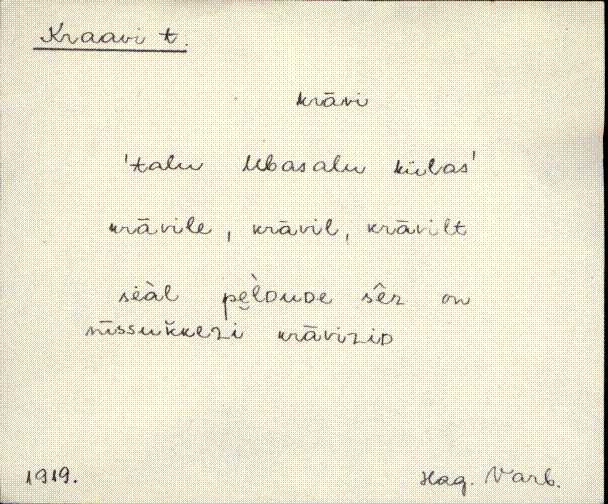 Kraavi t.
krāvi
'talu Ubasalu külas'
krāvile, krāvil, krāvilt
sèàl pè̮lᴅuᴅᴇ sêz on
nīssuk̆kᴇzi krāviziᴅ
1919.
Hag. Varb.